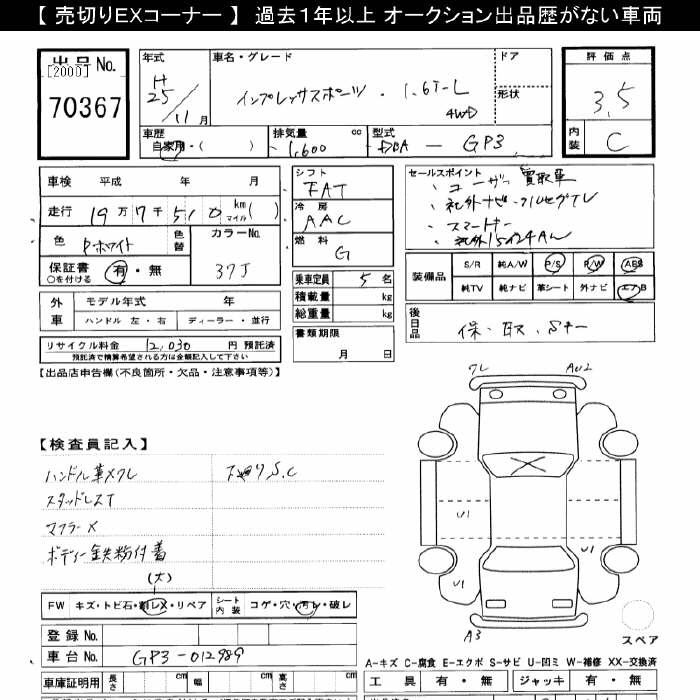 【 売切りEXコーナー 】 過去１年以上 オークション出品歴がない車両
出品 No.
[2000]
70367
年式
H
25/11月
車名・グレード
インプレッサスポーツ ・ 1.6i-L
4WD
ドア
形状
評価点
3.5
内装
C
車歴
自家用・( )
排気量 cc
1,600
型式
DBA - GP3
車検 平成 年 月
走行 19万7千510 km マイル( )
色 Pホワイト 色替
カラーNo.
37J
保証書 ○を付ける 有・無
外車
モデル年式 年
ハンドル 左・右 ディーラー・並行
リサイクル料金 12,030 円 預託済
預託済で精算希望される方は金額記入して下さい
【出品店申告欄(不良箇所・欠品・注意事項等)】
シフト
FAT
冷房
AAC
燃料
G
乗車定員 5 名
積載量 kg
総重量 kg
書類期限
月 日
セールスポイント
・ユーザー買取車
・社外ナビ・フルセグTV
・スマートキー
・社外15インチAW
装備品
S/R 純A/W P/S P/W ABS
純TV 純ナビ 革シート 外ナビ エアB
後日品
保・取・Sキー
ワレ
AU2
【検査員記入】
ハンドル革スレ
スタッドレスT
マフラーX
ボディー鉄粉付着
(大)
下廻りS.C
U1
U1
U1
A3
スペア
FW キズ・トビ石・割レX・リペア シート内装 コゲ・穴・汚レ・破レ
登録 No.
車台 No. GP3-012989
車庫証明用 長さ cm 幅 cm 高さ cm
A-キズ C-腐食 E-エクボ S-サビ U-凹ミ W-補修 XX-交換済
工具 有・無 ジャッキ 有・無